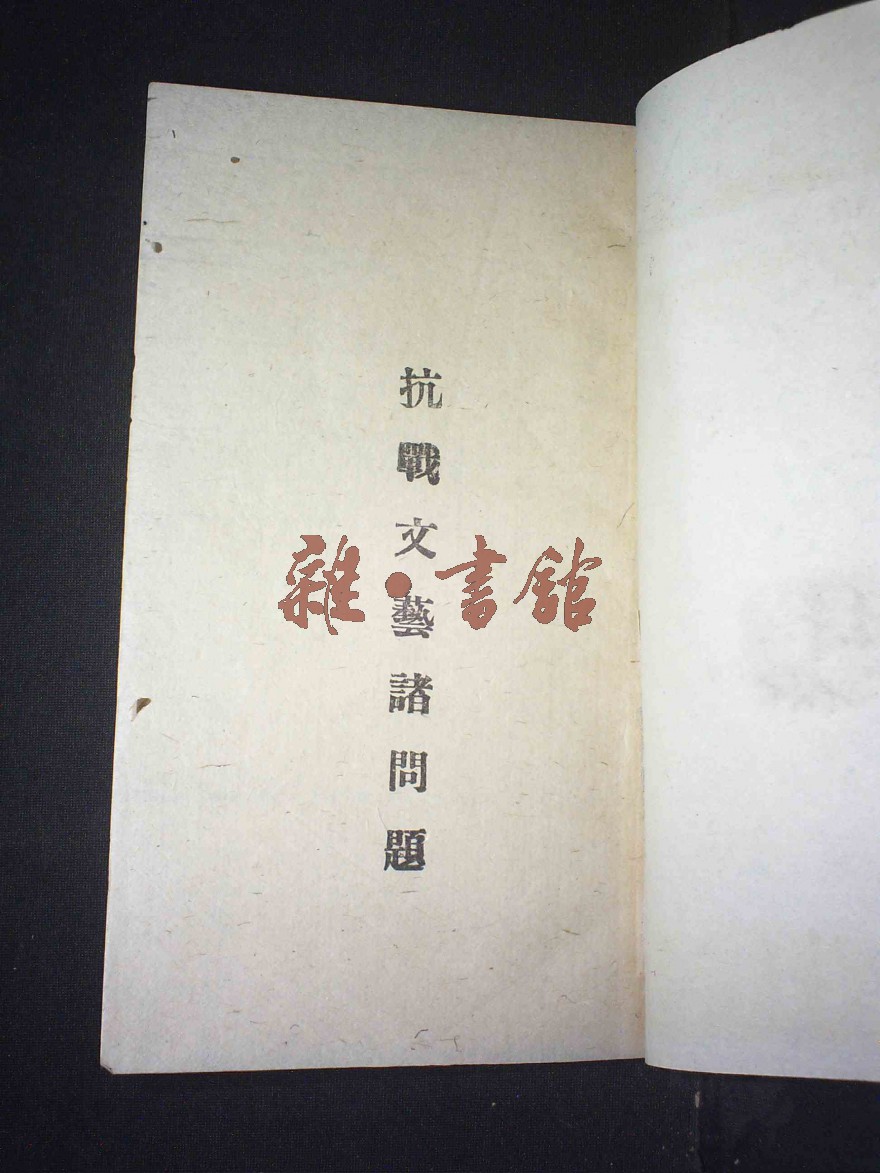 抗戰文藝諸問題
雜·書館